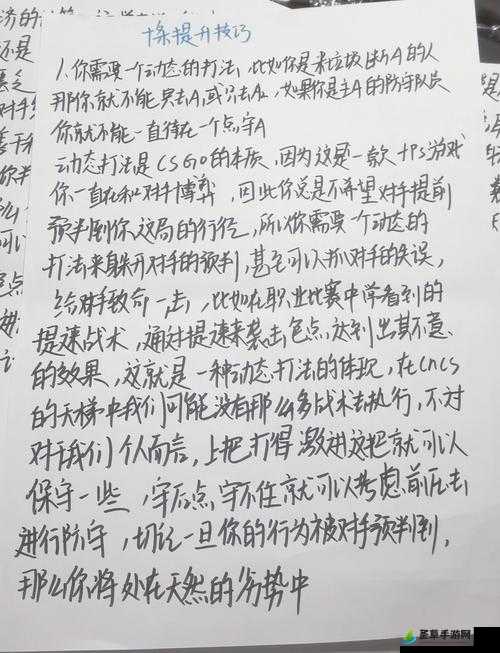 十条提升技巧
1.你需要一个动态的打法,比如你是米垃圾出A的人
那你就不能只去A1或只去A2,如果你是主A的防守队员
你就不能一直待在一个点守A
动态打法是CSGO的本质,因为这是一款FPS游戏
你一直在和对手博弈,因此你总是不希望对手提前
预判到你这局的行径,所以你需要一个动态的
打法来躲开对手的预判,甚至可以抓对手的失误,
给对手致命一击,比如在职业比赛中常看到的
提速战术,通过提速来袭击包点,达到出其不意
的效果,这就是一种动态打法的体现,在CNCS
的天梯中我们可能没有那么多战术去执行,不过
对于我们个人而言,上把打得激进这把就可以
保守一些,守后点守不住就可以考虑前压去
进行防守,切记一旦你的行为被对手预判到,
那么你将处在天然的劣势中
星草手游网